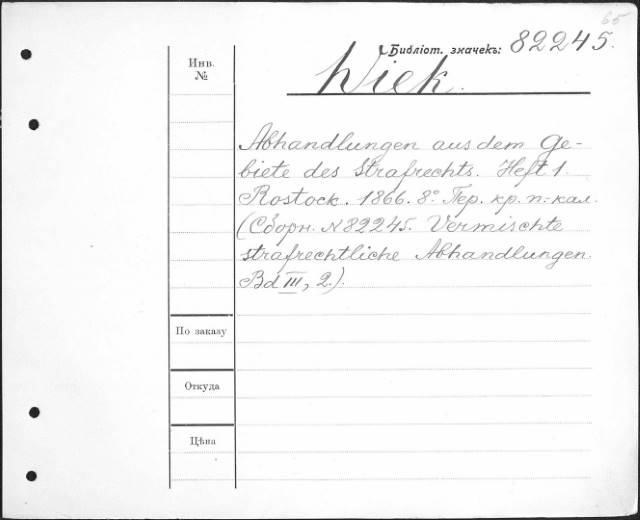 65
Библіот. значекъ: 82245.
Инв.
№
Wiek.
Abhandlungen aus dem Ge-
biete des Strafrechts. Heft 1.
Rostock. 1866. 8°. Пер. кр. п.-кал.
(Сборн. № 82245. Vermischte
strafrechtliche Abhandlungen.
Bd III, 2.).
По заказу
Откуда
Цѣна